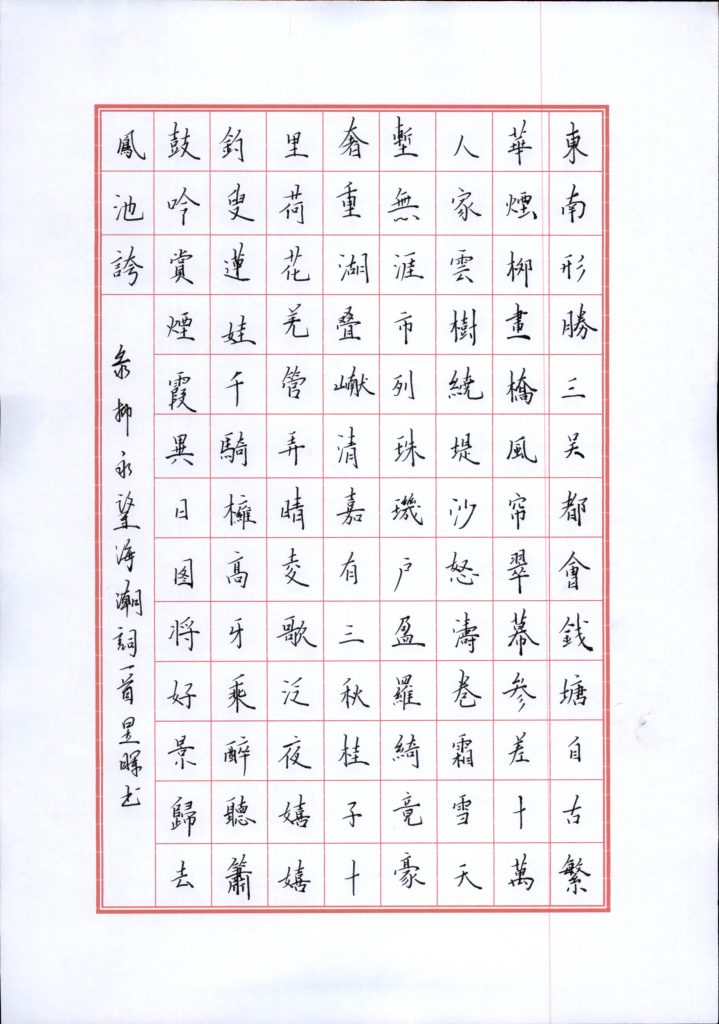 東南形勝三吴都會錢塘自古繁
華煙柳畫橋風帘翠幕參差十萬
人家雲樹繞堤沙怒濤卷霜雪天
塹無涯市列珠璣户盈羅綺竟豪
奢重湖叠巘清嘉有三秋桂子十
里荷花羌管弄晴菱歌泛夜嬉嬉
釣叟蓮娃千騎擁高牙乘醉聽簫
鼓吟賞煙霞異日图将好景歸去
鳳池誇
录柳永望海潮詞一首昱暉书